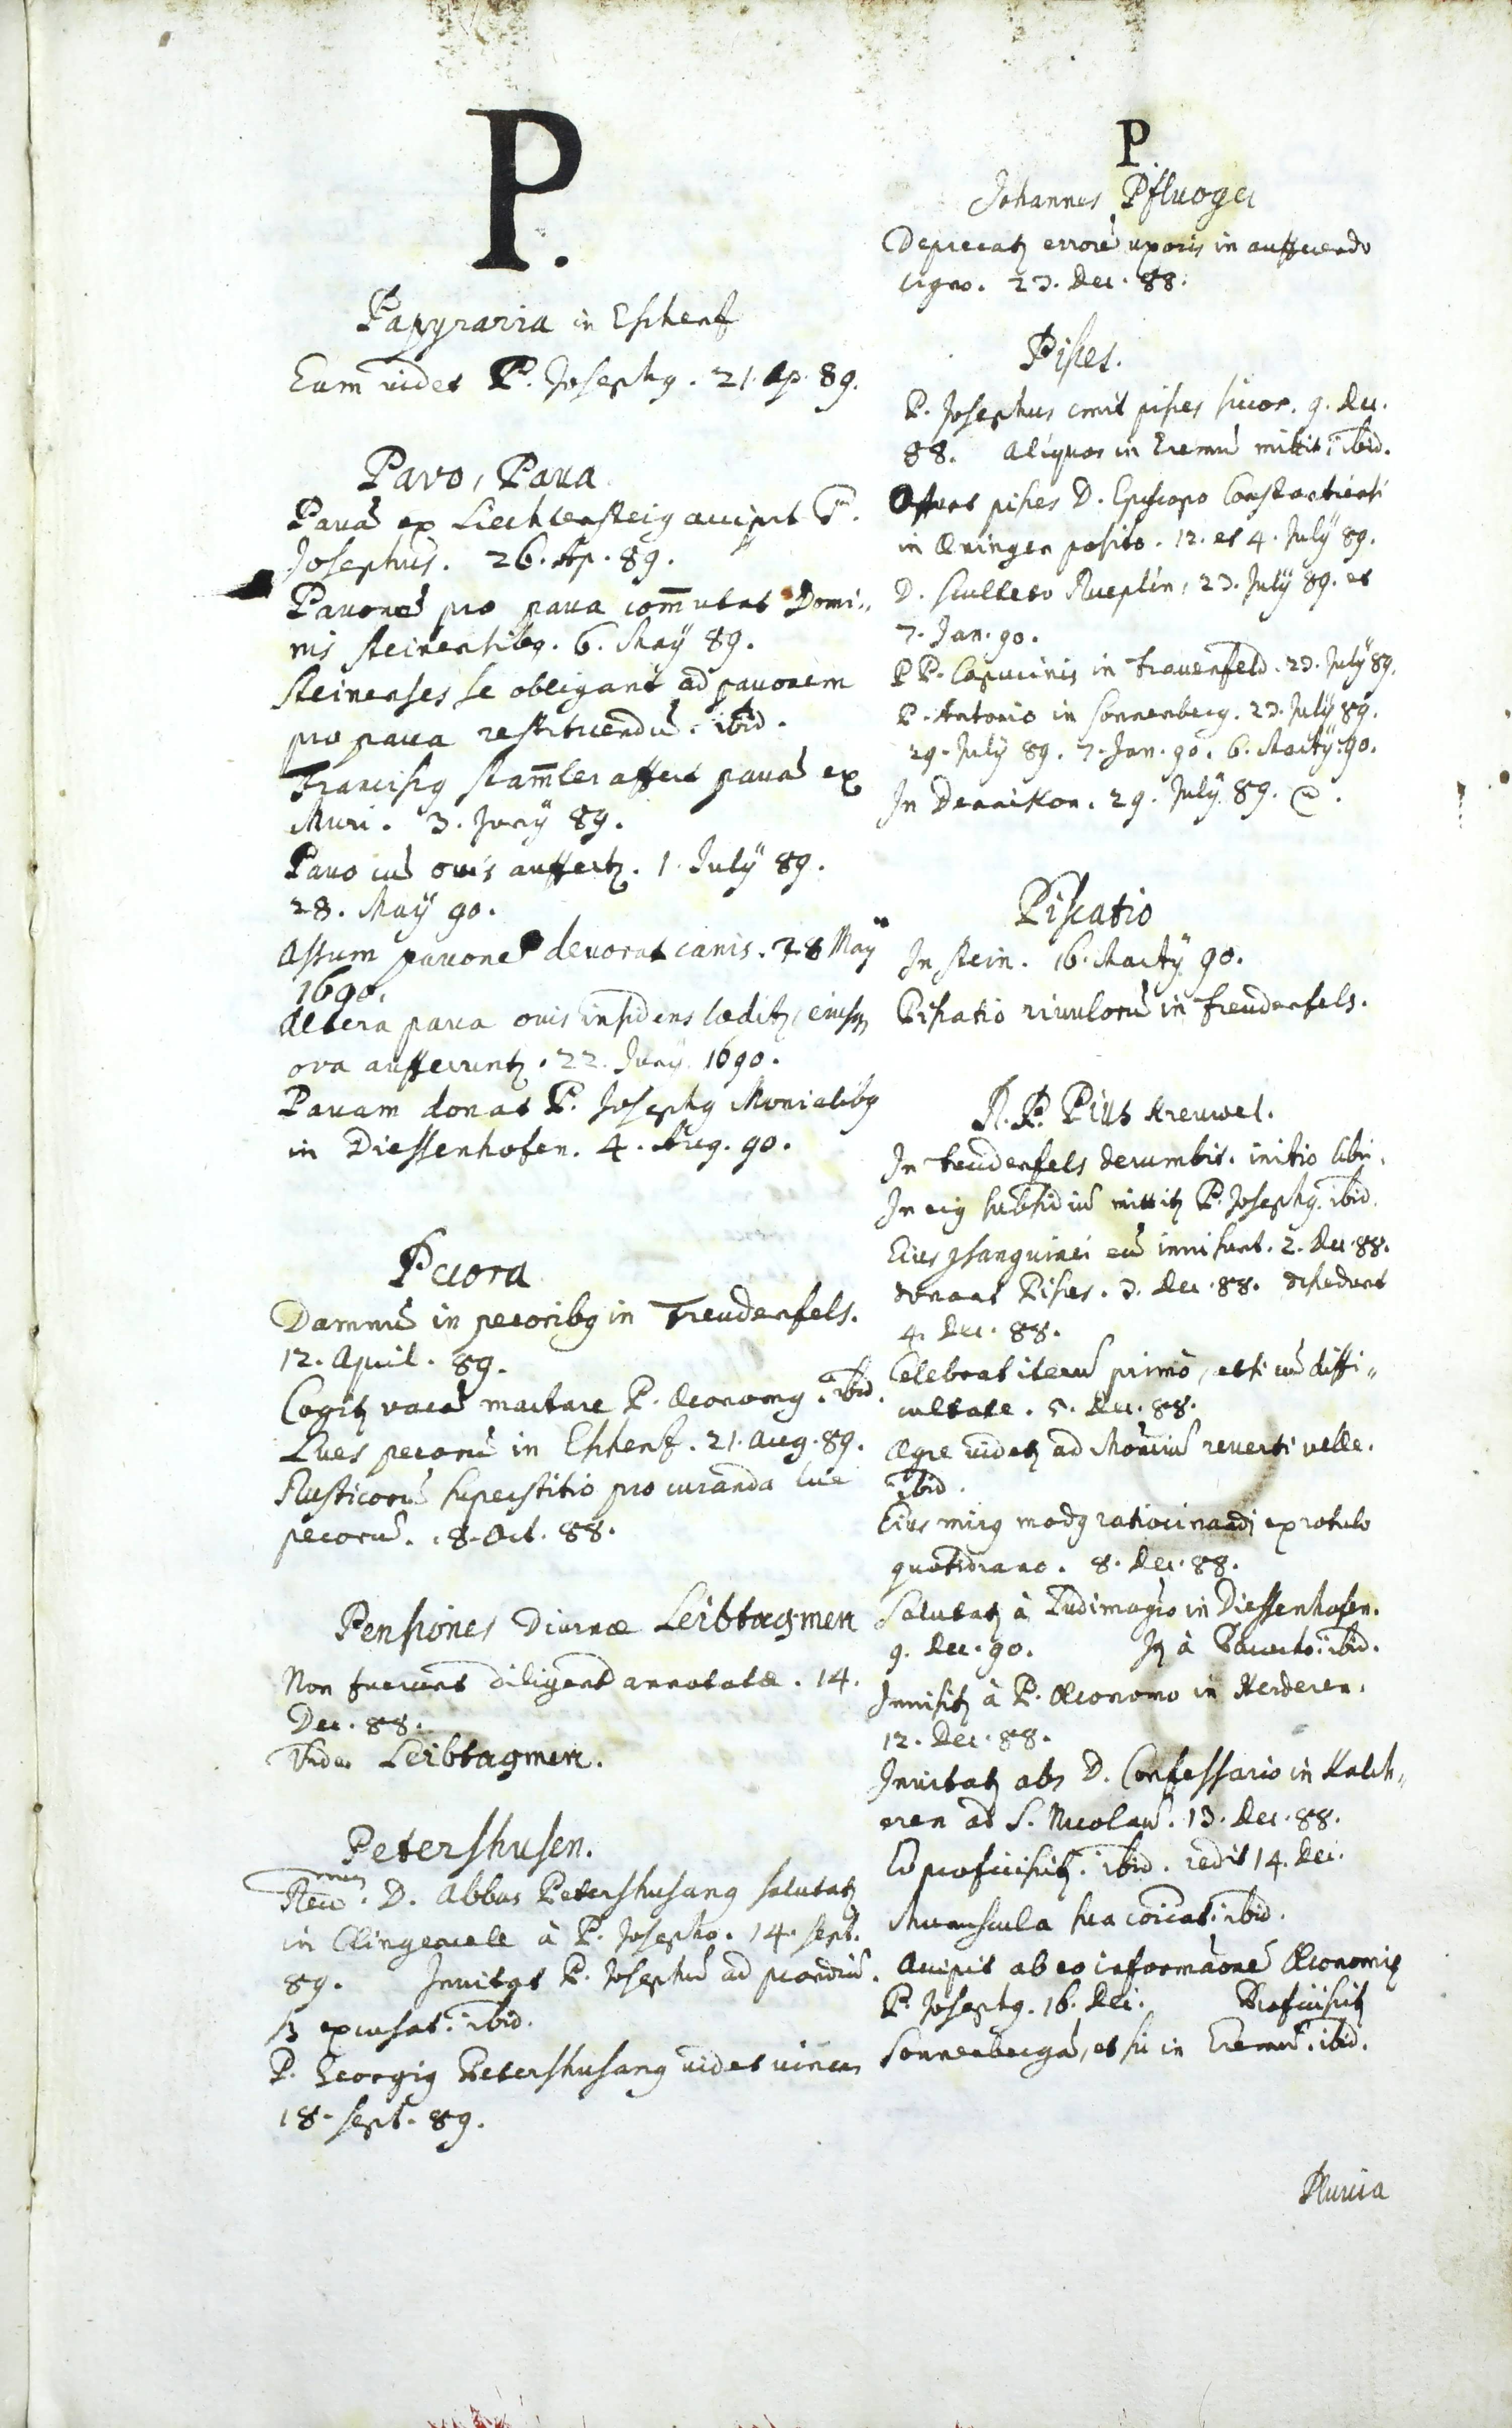 P.
Papyraria in Eschenz
Eum videt P. Josephg. 21. Ap. 89.
Pavo, Paua
Pauã ex Liechtensteig accipit P.
Josephus. 26. Ap. 89.
Pauonẽ pro paua com̄utat Domi„
nis Steinensibg. 6. Maÿ 89.
Steinenses se obligant ad pauonem
pro paua restituendũ. ibid.
Franciscg Stam̄ler affert pauã ex
Muri. 3. Junÿ 89.
Pauo cũ ouis auffertʒ. 1. Julÿ 89.
28. Maÿ 90.
Assum pauonẽ deuorat canis. 28 Maÿ
1690.
Altera paua ouis insidens læditʒ, eiusqʒ
ova aufferuntʒ. 22. Junÿ 1690.
Pauam donat P. Josephg Monialibg
in Diessenhofen. 4. Aug. 90.
Pecora
Damnũ in pecoribg in Freudenfels.
12. April. 89.
Cogitʒ vacã mactare P. Œconomg. ibid.
Lues pecorũ in Eschenz. 21. Aug. 89.
Rusticorũ superstitio pro curanda lue
pecorũ. 8. Oct. 88.
Pensiones Diurnæ Leibtagmen
Non fuerunt diligent annotatæ. 14.
Dec. 88.
Vide Leibtagmen.
Petershusen.
Reũ mus. D. Abbas Petershusang salutatʒ
in Clingenzele à P. Josepho. 14. Sept.
89. Inuitat P. Josephũ ad prandiũ.
ß excusat. ibid.
P. Georgig Petershusang videt vineas
18. Sept. 89.
P.
Johannes Pfluoger
Deprecatʒ errorẽ uxoris in aufferendo
ligno. 23. Dec. 88.
Pisces.
P. Josephus emit pisces siccos. 9. Dec.
88. Aliquos in Eremũ mittit, ibid.
Offert pisces D. Episcopo Constantiensi
in Œningen posito. 12. et 4. Julÿ 89.
D. Sculteto Rueplin, 23. Julÿ 89. et
7. Jan. 90.
PP. Capucinis in Frauenfeld. 23. Julÿ 89.
P. Antonio in Sonnenberg. 23. Julÿ 89.
29. Julÿ 89. 7. Jan. 90. 6. Martÿ 90.
In Dennikon. 29. Julÿ 89.
Piscatio
In Stein. 16. Martÿ 90.
Piscatio riuulorũ in Freudenfels.
R. P. Pius Kreuwel.
In Freudenfels decumbit. initio libri.
In eig subsidiũ mittitʒ P. Josephg. ibid.
Eius ꝯsanguinei eũ inuisunt. 2. Dec. 88.
donant Pisces. 3. Dec. 88. discedunt
4. Dec. 88.
Celebrat iterũ primò, etsi cũ diffi„
cultate. 5. Dec. 88.
Ægre videtʒ ad Monriũ reuerti velle.
ibid.
Eius mirg modg ratiocinandi ex rotulo
quotidiano. 8. Dec. 88.
Salutatʒ à Ludimagro in Diessenhofen.
9. Dec. 90. Itʒ à Parocho. ibid.
Inuisitʒ à P. Œconomo in Herderen.
12. Dec. 88.
Inuitatʒ abs D. Confessario in Kalch„
eren ad S. Nicolaũ. 13. Dec. 88.
Eò proficiscitʒ. ibid. redit 14. Dec.
Munuscula sua coicat. ibid.
Accipit ab eo informaonẽ Œconomig
P. Josephg. 16. Dec. Proficiscitʒ
Sonnenbergã, et sic in Eremũ. ibid.
Pluuia